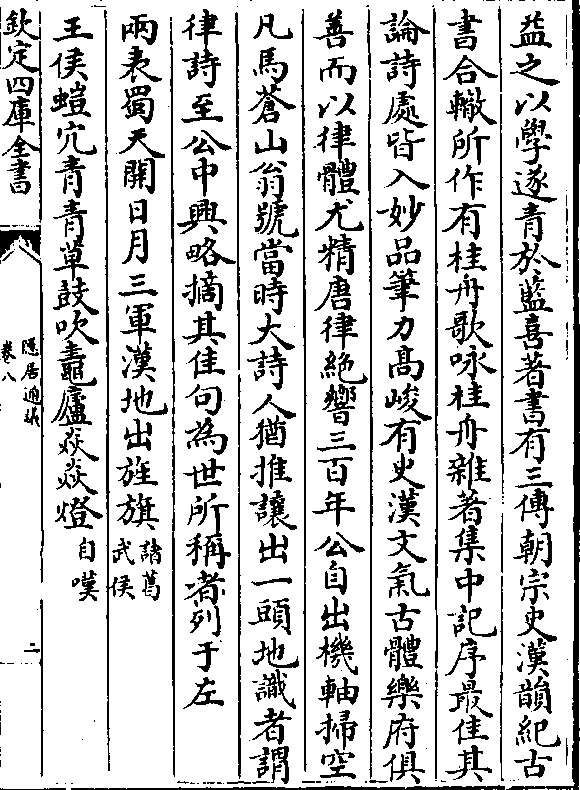 益之以學遂青於藍喜著書有三傳朝宗史漢韻紀古
書合轍所作有桂舟歌咏桂舟雜著集中記序最佳其
論詩處皆入妙品筆力髙峻有史漢文氣古體樂府俱
善而以律體尤精唐律絶響三百年公自出機軸掃空
凡馬蒼山翁號當時大詩人猶推讓出一頭地識者謂
律詩至公中興略摘其佳句為世所稱者列于左
兩表蜀天開日月三軍漢地出旌旗諸葛武侯
王侯螘穴青青草鼓吹鼃廬焱焱燈自嘆
欽定四庫全書
隱居通議
卷八
二